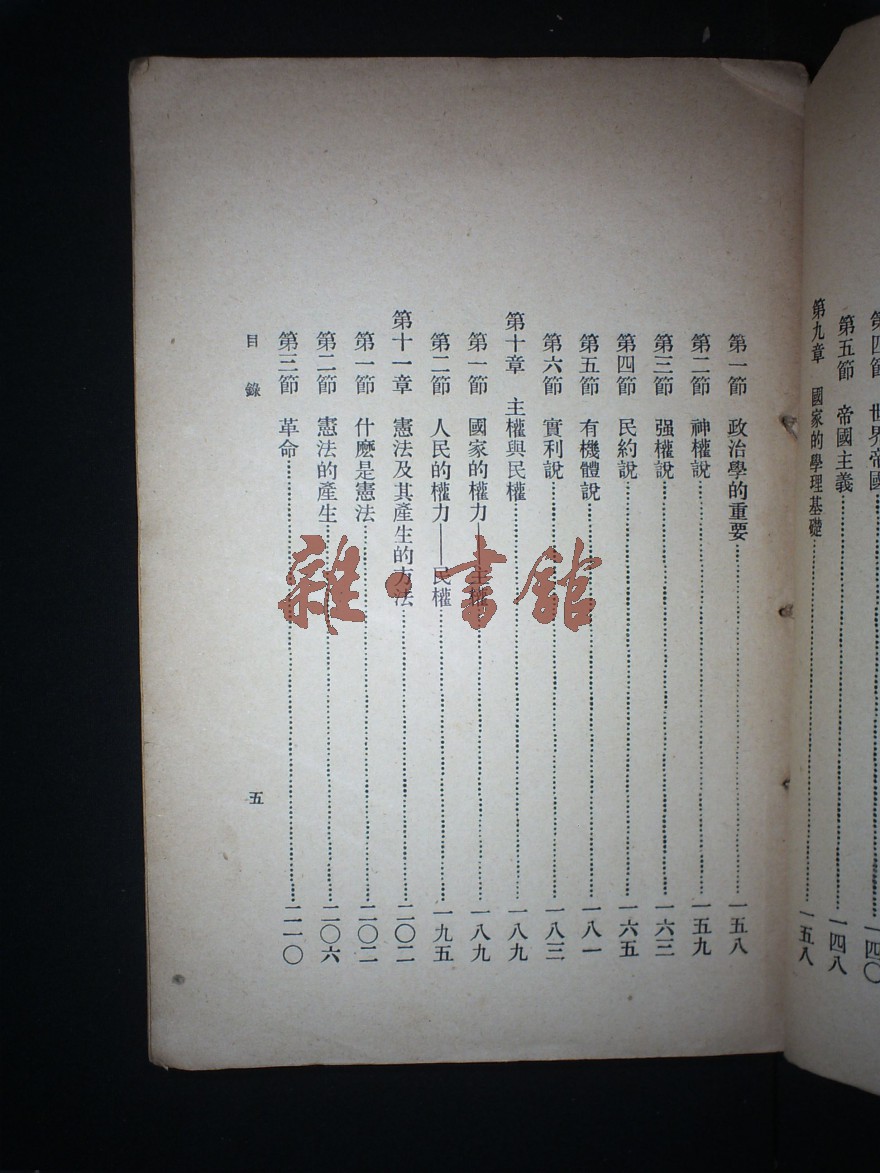 第四節　世界帝國……一四〇
第五節　帝國主義……一四八
第九章　國家的學理基礎……一五八
第一節　政治學的重要……一五八
第二節　神權說……一五九
第三節　强權說……一六三
第四節　民約說……一六五
第五節　有機體說……一八一
第六節　實利說……一八三
第十章　主權與民權……一八九
第一節　國家的權力——主權……一八九
第二節　人民的權力——民權……一九五
第十一章　憲法及其產生的方法……二〇二
第一節　什麽是憲法……二〇二
第二節　憲法的產生……二〇六
第三節　革命……二一〇
目錄　五
雜·書館